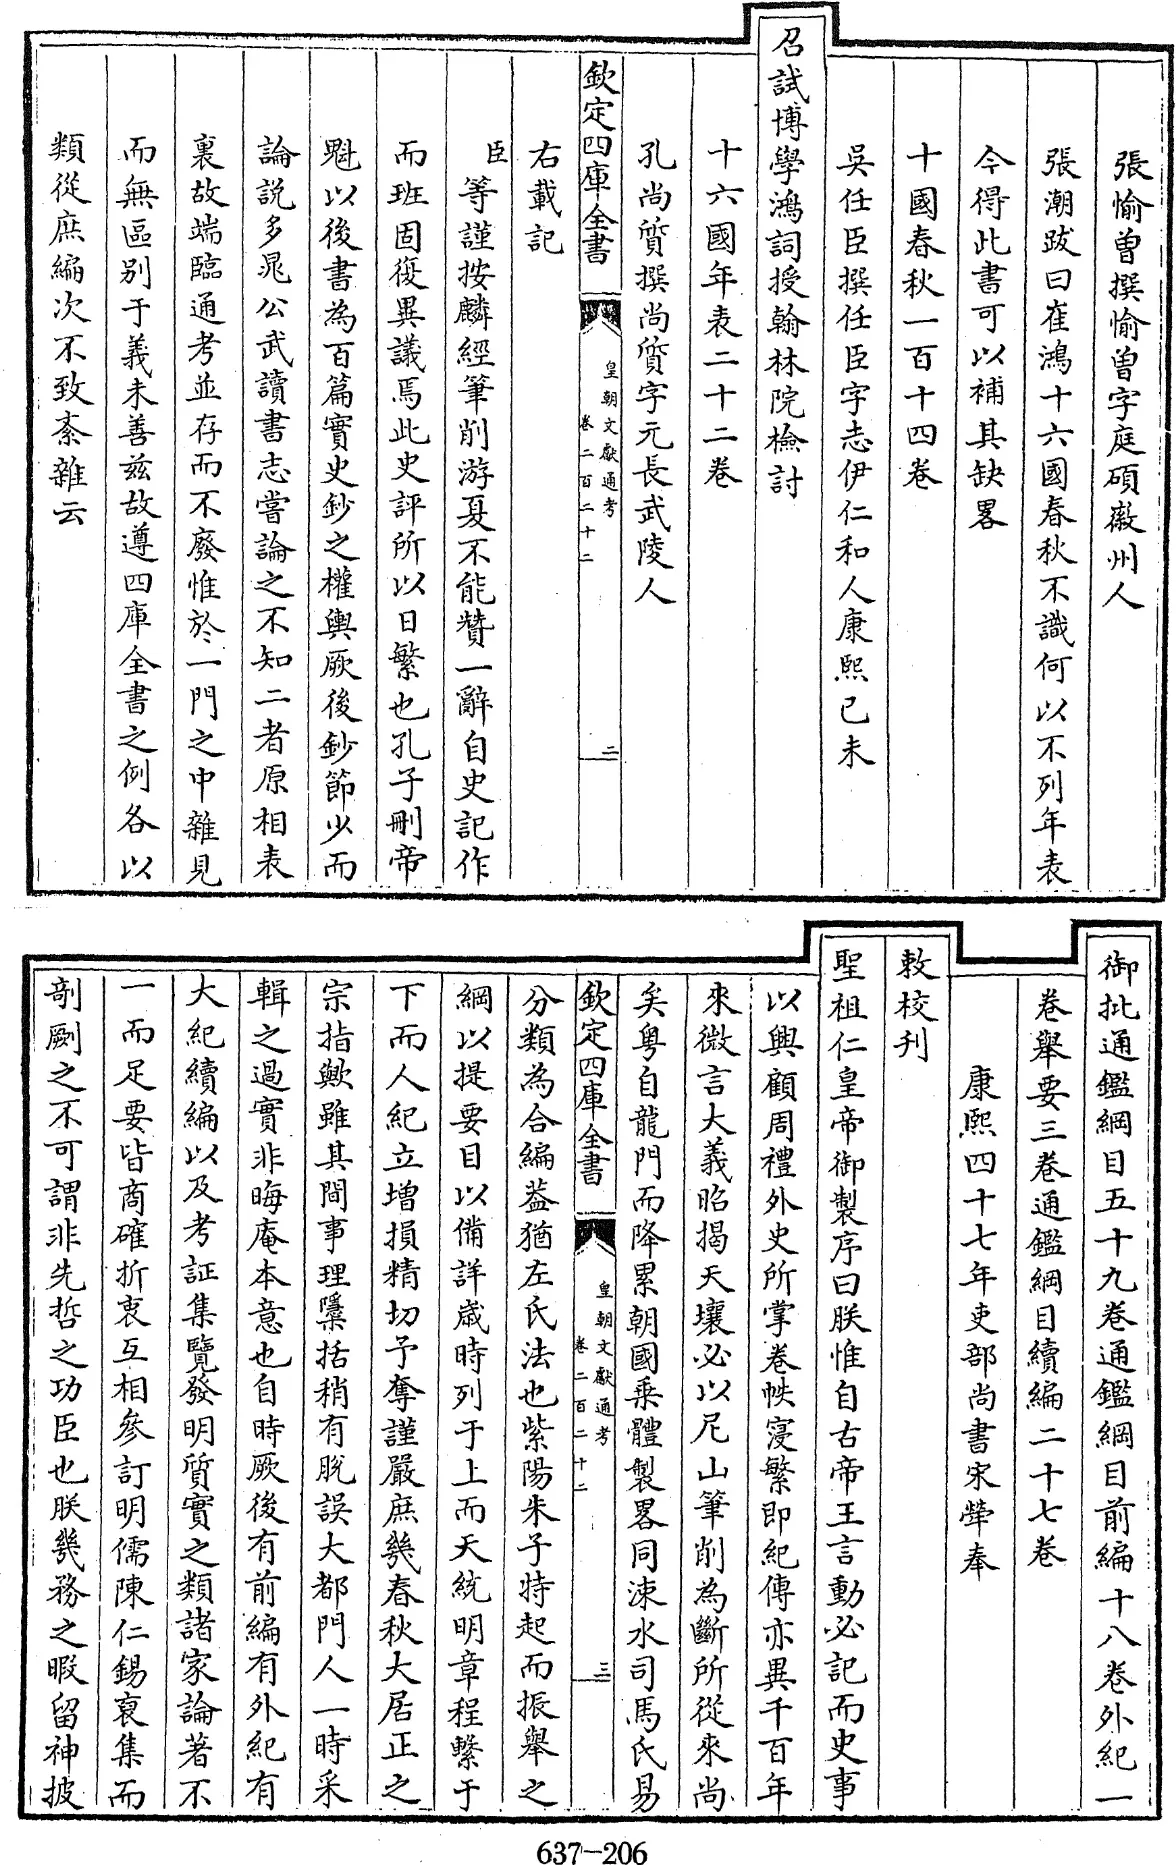 張愉曾撰愉曾字庭碩徽州人
張潮跋曰崔鴻十六國春秋不識何以不列年表
今得此書可以補其缺畧
十國春秋一百十四卷
吳任臣撰任臣字志伊仁和人康熙己未
召試博學鴻詞授翰林院檢討
十六國年表二十二卷
孔尚質撰尚質字元長武陵人
欽定四庫全書
皇朝文獻通考
卷二百二十二
二
右載記
臣等謹按麟經筆削游夏不能贊一辭自史記作
而班固復異議焉此史評所以日繁也孔子刪帝
魁以後書為百篇實史鈔之權輿厥後鈔節少而
論說多晁公武讀書志嘗論之不知二者原相表
裏故端臨通考並存而不廢惟於一門之中雜見
而無區别于義未善兹故遵四庫全書之例各以
類從庶編次不致紊雜云
御批通鑑綱目五十九卷通鑑綱目前編十八卷外紀一
卷舉要三卷通鑑綱目續編二十七卷
康熙四十七年吏部尚書宋犖奉
敕校刊
聖祖仁皇帝御製序曰朕惟自古帝王言動必記而史事
以興顧周禮外史所掌卷帙寖繁即紀傳亦異千百年
來微言大義昭揭天壤必以尼山筆削為斷所從來尚
矣粤自龍門而降累朝國乘體製畧同涑水司馬氏易
欽定四庫全書
皇朝文獻通考
卷二百二十二
三
分類為合編葢猶左氏法也紫陽朱子特起而振舉之
綱以提要目以備詳歲時列于上而天統明章程繫于
下而人紀立增損精切予奪謹嚴庶幾春秋大居正之
宗指歟雖其間事理櫽括稍有脱誤大都門人一時采
輯之過實非晦庵本意也自時厥後有前編有外紀有
大紀續編以及考証集覽發明質實之類諸家論著不
一而足要皆商確折衷互相參訂明儒陳仁錫裒集而
剞劂之不可謂非先哲之功臣也朕幾務之暇留神披
637-206